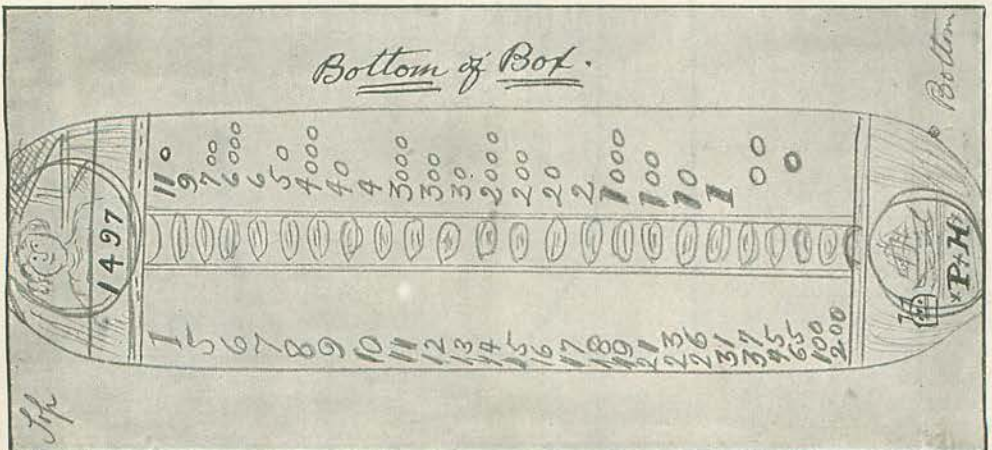 Bottom of Box.
Bottom
110
9
700
6000
6
50
4000
40
4
3000
300
30
2000
200
20
2
1000
100
10
1
00
0
1497
×P+H+
1
5
6
7
8
9
10
11
12
13
14
15
16
17
18
19
21
23
26
31
37
45
65
100
200
Top